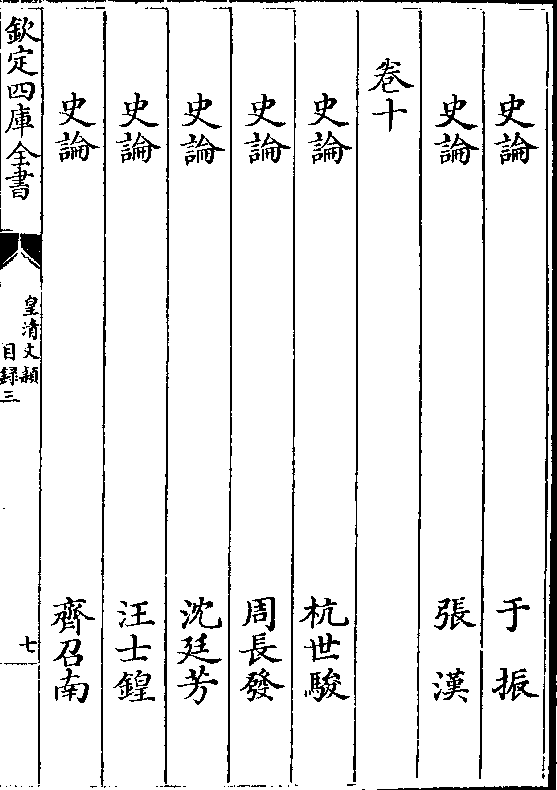 史論 于振
史論 張漢
卷十
史論 杭世駿
史論 周長發
史論 沈廷芳
史論 汪士鍠
史論 齊召南
欽定四庫全書
皇清文穎
目録三
七